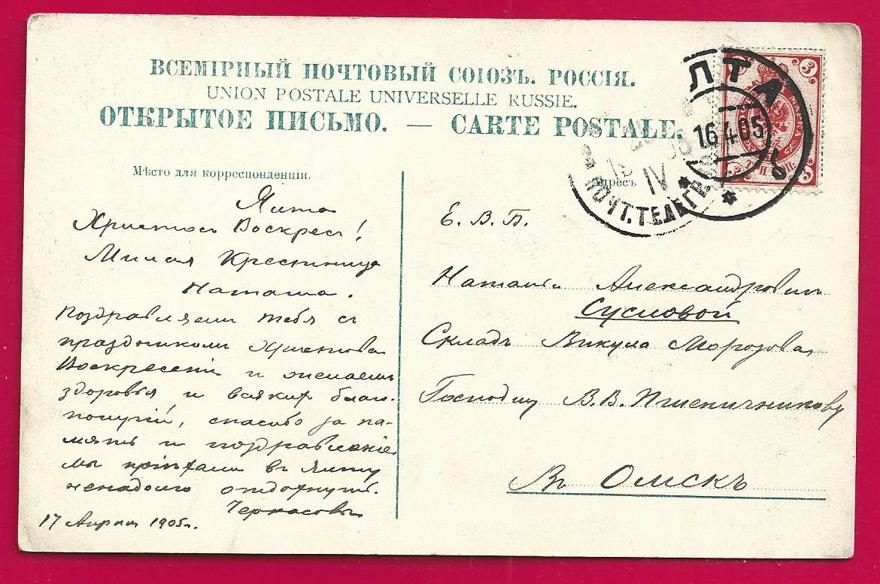 ВСЕМІРНЫЙ ПОЧТОВЫЙ СОЮЗЪ. РОССІЯ.
UNION POSTALE UNIVERSELLE RUSSIE.
ОТКРЫТОЕ ПИСЬМО. — CARTE POSTALE.
ЛТА
16 4 05
3
3
IV
ПОЧТ. ТЕЛЕГР.
Мѣсто для корреспонденціи.
Адресъ
Ялта
Христосъ Воскресъ!
Милая Крестница
Наташа.
Поздравляемъ тебя съ
праздникомъ Христова
Воскресенія и желаемъ
здоровья и всякихъ благо-
получій, спасибо за па-
мять и поздравленіе
мы пріѣхали въ Ялту
ненадолго отдохнуть.
Черкасовы
17 Апрѣля 1905 г.
Е. В. Б.
Наталіи Александровнѣ
Сусловой
Складъ Викула Морозова
Господину В. В. Пшеничникову
Въ Омскъ